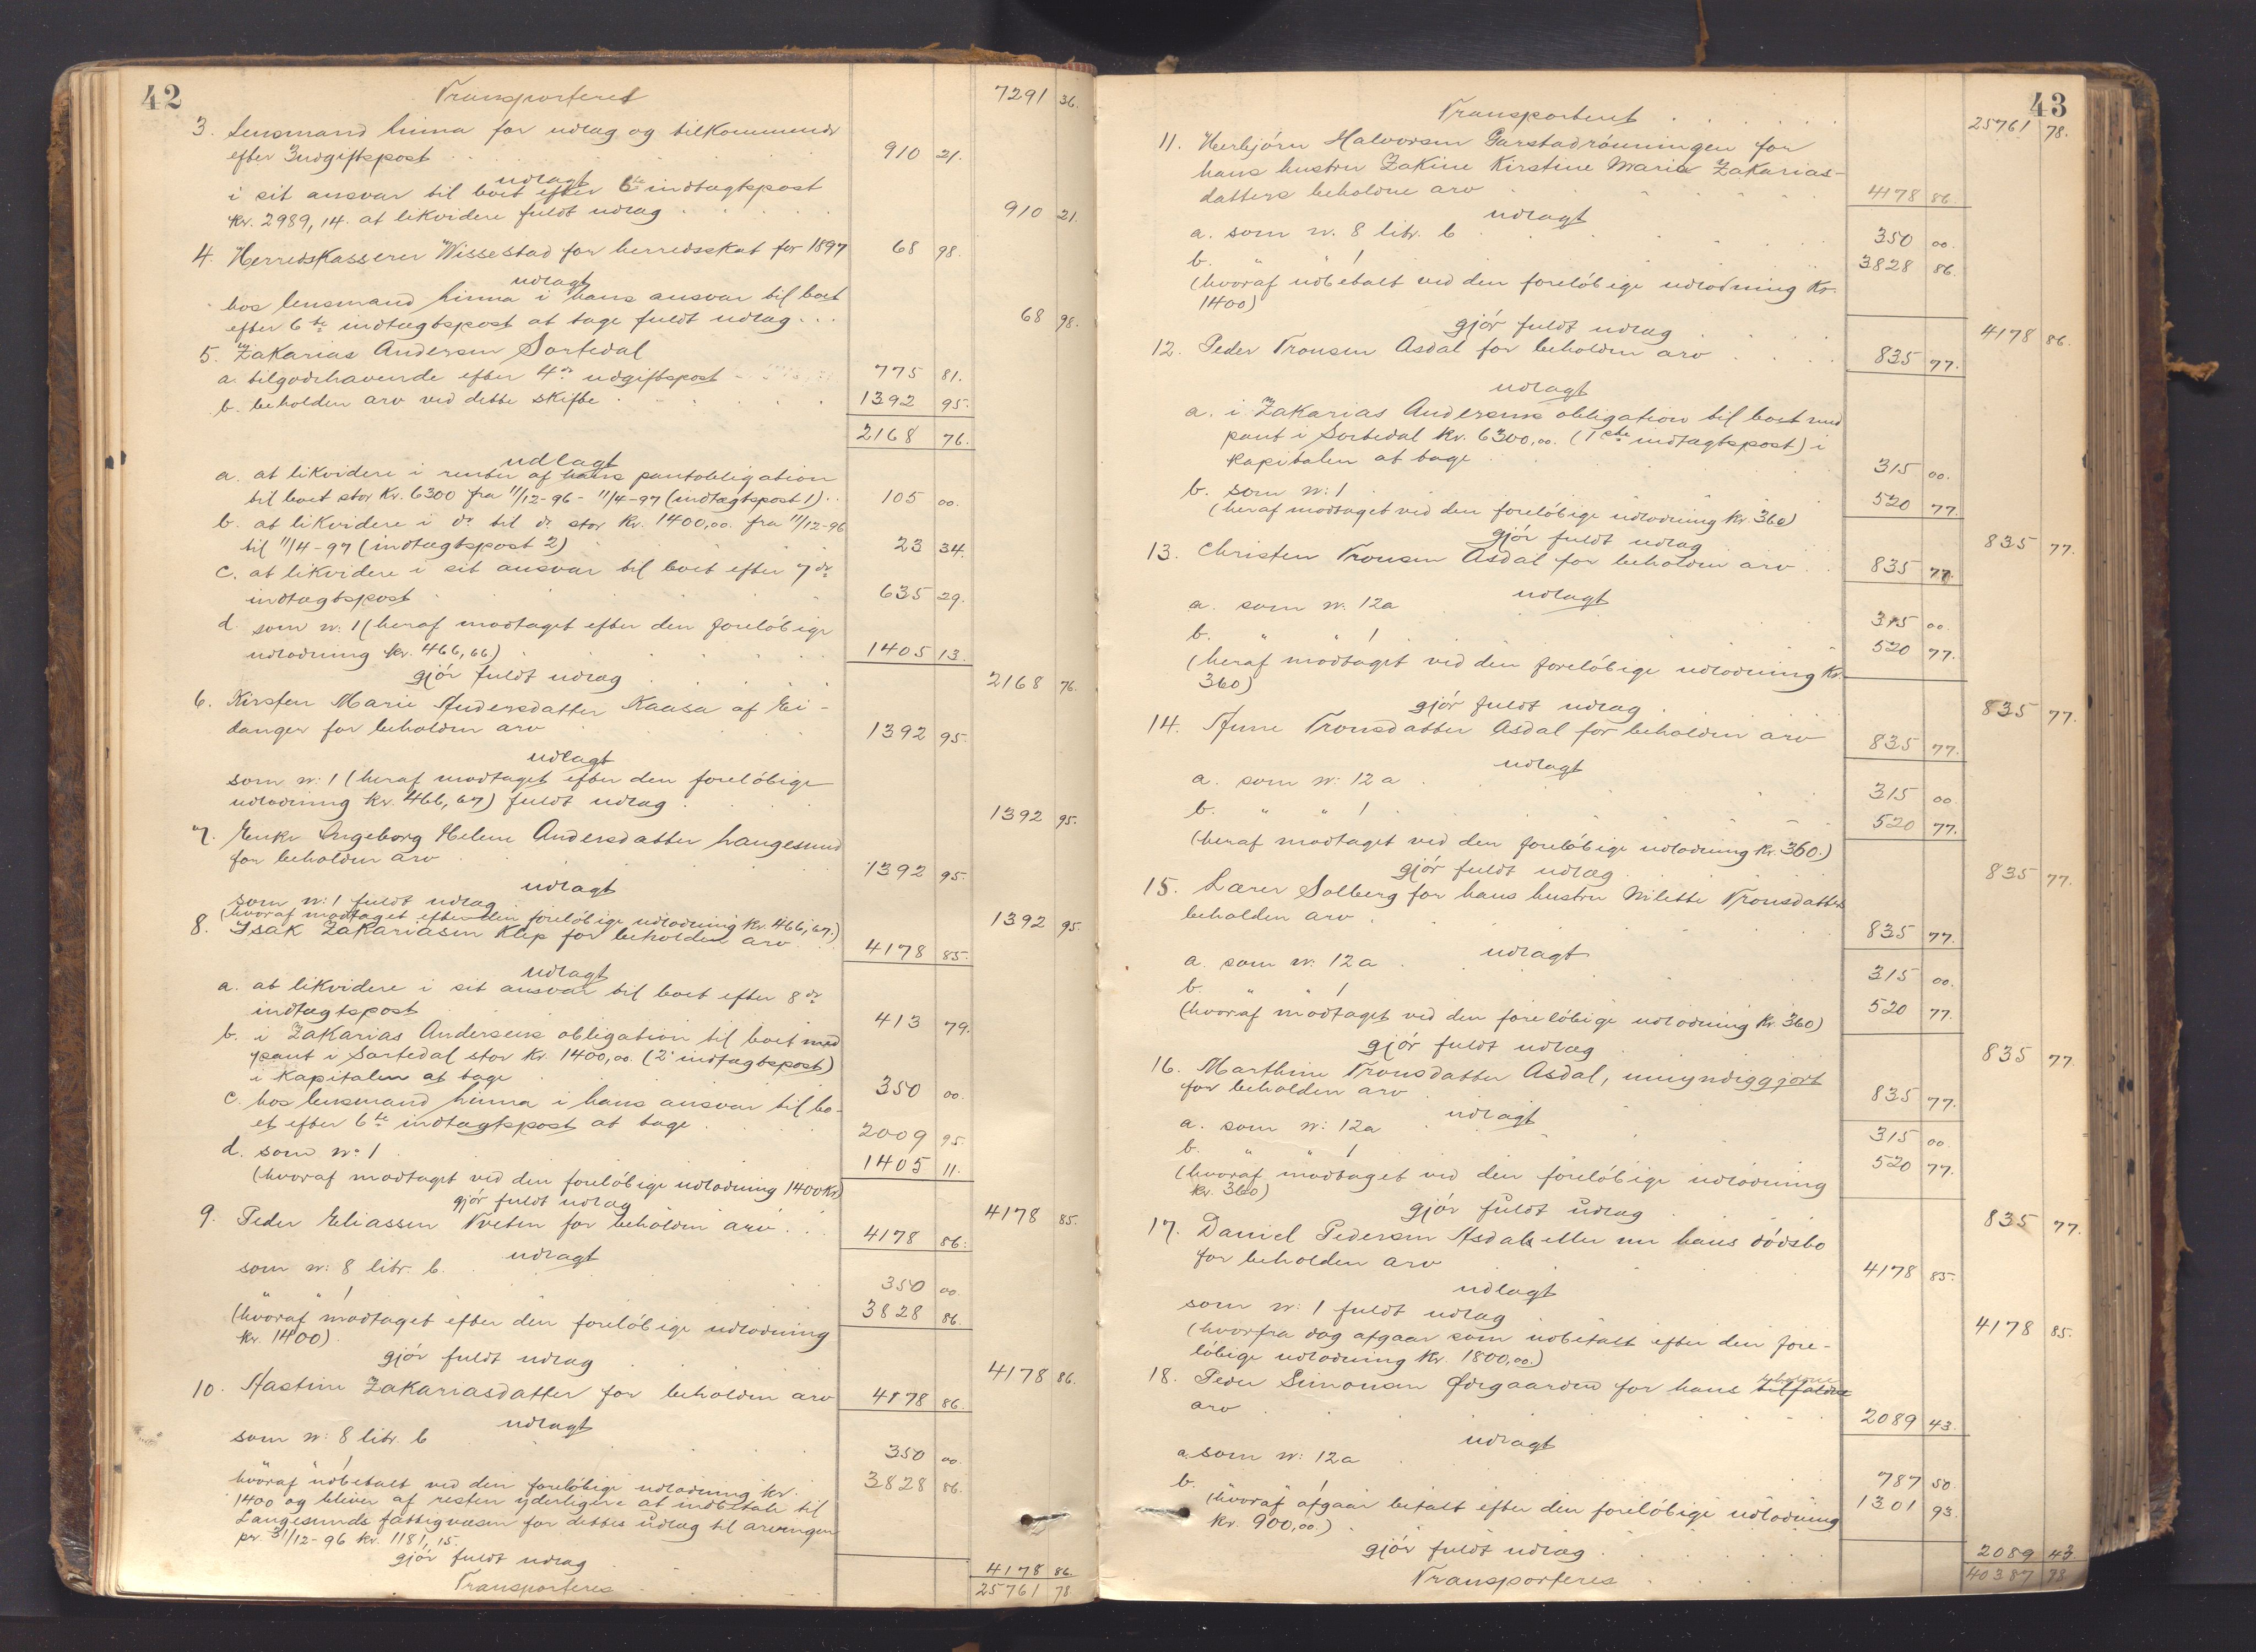 42
Transporteret 7291 36.
3. Lensmand Linna for udlæg og tilkommende
efter 3 udgiftspost 910 21.
udlagt
i sit ansvar til boet efter 6te indtægtspost
kr. 2989,14. at likvidere fuldt udlæg 910 21.
4. Herredskasserer Wissestad for herredsskat for 1897 68 98.
udlagt
hos lensmand Linna i hans ansvar til boet
efter 6te indtægtspost at tage fuldt udlæg 68 98.
5. Zakarias Andersen Sortedal
a. tilgodehavende efter 4de udgiftspost 775 81.
b. beholden arv ved dette skifte 1392 95.
2168 76.
udlagt
a. at likvidere i renter af hans pantobligation
til boet stor Kr. 6300 fra 11/12-96 - 11/4-97 (indtægtspost 1) 105 00.
b. at likvidere i do til do stor kr. 1400,00. fra 11/12-96
til 11/4-97 (indtægtspost 2) 23 34.
c. at likvidere i sit ansvar til boet efter 7de
indtægtspost 635 29.
d. som n: 1 (heraf modtaget efter den foreløbige
udlodning kr. 466,66) 1405 13.
gjør fuldt udlæg 2168 76.
6. Kirsten Marie Andersdatter Kaasa af Ei-
danger for beholden arv 1392 95.
udlagt
som n: 1 (heraf modtaget efter den foreløbige
udlodning kr. 466,67) fuldt udlæg 1392 95.
7. Enke Ingeborg Helene Andersdatter Langesund
for beholden arv 1392 95.
udlagt
som n: 1 fuldt udlæg
(hvoraf modtaget efter den foreløbige udlodning kr. 466,67.) 1392 95.
8. Isak Zakariasen Klep for beholden arv 4178 85.
udlagt
a. at likvidere i sit ansvar til boet efter 8de
indtægtspost 413 79.
b. i Zakarias Andersens obligation til boet med
pant i Sortedal stor Kr. 1400,00. (2. indtægtspost)
i Kapitalen at tage 350 00.
c. hos lensmand Linna i hans ansvar til bo-
et efter 6te indtægtspost at tage 2009 95.
d. som n: 1 1405 11.
(hvoraf modtaget ved den foreløbige udlodning 1400 Kr)
gjør fuldt udlæg 4178 85.
9. Peder Eliassen Tveten for beholden arv 4178 86.
udlagt
som n: 8 litr. b. 350 00.
" " 1 3828 86.
(hvoraf modtaget efter den foreløbige udlodning
kr. 1400)
gjør fuldt udlæg 4178 86.
10. Hastine Zakariasdatter for beholden arv 4178 86.
udlagt
som n: 8 litr. b 350 00.
" " 1 3828 86.
hvoraf udbetalt ved den foreløbige udlodning kr.
1400 og bliver af resten yderligere at indbetale til
Langesunds fattigvæsen for dettes udlæg til arvingen
pr. 31/12-96 kr. 1181,15.
gjør fuldt udlæg 4178 86.
Transporteres 25761 78.
43
Transporteret 25761 78.
11. Herbjørn Halvorsen Garstadrønningen for
hans hustru Zakine Kirstine Maria Zakarias-
datters beholdne arv 4178 86.
udlagt
a. som n. 8 litr. b 350 00.
b. " " 1 3828 86.
(hvoraf udbetalt ved den foreløbige udlodning Kr.
1400)
gjør fuldt udlæg 4178 86.
12. Peder Tronsen Asdal for beholden arv 835 77.
udlagt
a. i Zakarias Andersens obligation til boet med
pant i Sortedal kr. 6300,00. (1ste indtægtspost) i
Kapitalen at tage 315 00.
b. som n: 1 520 77.
(heraf modtaget ved den foreløbige udlodning kr. 360)
gjør fuldt udlæg 835 77.
13. Christen Tronsen Asdal for beholden arv 835 77.
udlagt
a. som n: 12a 315 00.
b. " " 1 520 77.
(heraf modtaget ved den foreløbige udlodning kr.
360)
gjør fuldt udlæg 835 77.
14. Anne Tronsdatter Asdal for beholden arv 835 77.
udlagt
a. som n: 12 a 315 00.
b. " " 1 520 77.
(heraf modtaget ved den foreløbige udlodning kr. 360.)
gjør fuldt udlæg 835 77.
15. Lærer Solberg for hans hustru Milette Tronsdatters
beholden arv 835 77.
udlagt
a. som n: 12 a 315 00.
b. " " 1 520 77.
(hvoraf modtaget ved den foreløbige udlodning kr. 360)
gjør fuldt udlæg 835 77.
16. Marthine Tronsdatter Asdal, umyndiggjort
for beholden arv 835 77.
udlagt
a. som n: 12a 315 00.
b. " " 1 520 77.
(hvoraf modtaget ved den foreløbige udlodning
kr. 360)
gjør fuldt udlæg 835 77.
17. Daniel Pedersen Asdal eller nu hans dødsbo
for beholden arv 4178 85.
udlagt
som n: 1 fuldt udlæg 4178 85.
(hvorfra dog afgaar som udbetalt efter den fore-
løbige udlodning Kr. 1800,00.)
18. Peder Simonsen Ørgaarden for hans tilfaldne beholdne
arv 2089 43.
udlagt
a som n: 12a 787 50.
b. " " 1 1301 93.
(hvoraf afgaar betalt efter den foreløbige udlodning
kr. 900,00.)
gjør fuldt udlæg 2089 43.
Transporteres 40387 78